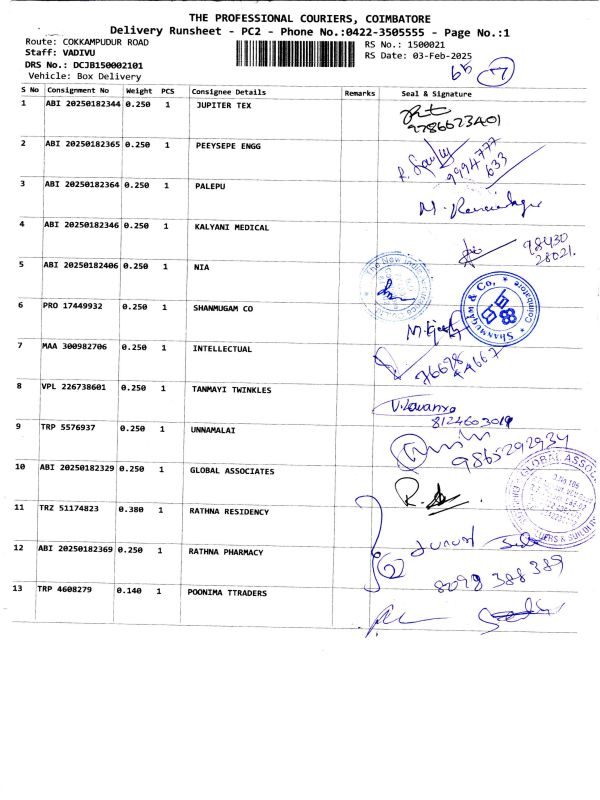 THE PROFESSIONAL COURIERS, COIMBATORE
Delivery Runsheet - PC2 - Phone No.:0422-3505555 - Page No.:1
Route: COKKAMPUDUR ROAD
RS No.: 1500021
Staff: VADIVU
RS Date: 03-Feb-2025
DRS No.: DCJB150002101
Vehicle: Box Delivery
65
7
S No Consignment No Weight PCS Consignee Details Remarks Seal & Signature
1 ABI 20250182344 0.250 1 JUPITER TEX
2 ABI 20250182365 0.250 1 PEEYSEPE ENGG
9994777
633
3 ABI 20250182364 0.250 1 PALEPU
4 ABI 20250182346 0.250 1 KALYANI MEDICAL
98430
28021.
5 ABI 20250182406 0.250 1 NIA
The New India
6 PRO 17449932 0.250 1 SHANMUGAM CO
SHANMUGAM & Co. Coimbatore
7 MAA 300982706 0.250 1 INTELLECTUAL
76698
44667
8 VPL 226738601 0.250 1 TANMAYI TWINKLES
V. Lavanya
8124603019
9 TRP 5576937 0.250 1 UNNAMALAI
9865292934
10 ABI 20250182329 0.250 1 GLOBAL ASSOCIATES
GLOBAL ASSOC
ERS & BUILDERS
11 TRZ 51174823 0.380 1 RATHNA RESIDENCY
12 ABI 20250182369 0.250 1 RATHNA PHARMACY
2
8098 388389
13 TRP 4608279 0.140 1 POONIMA TTRADERS